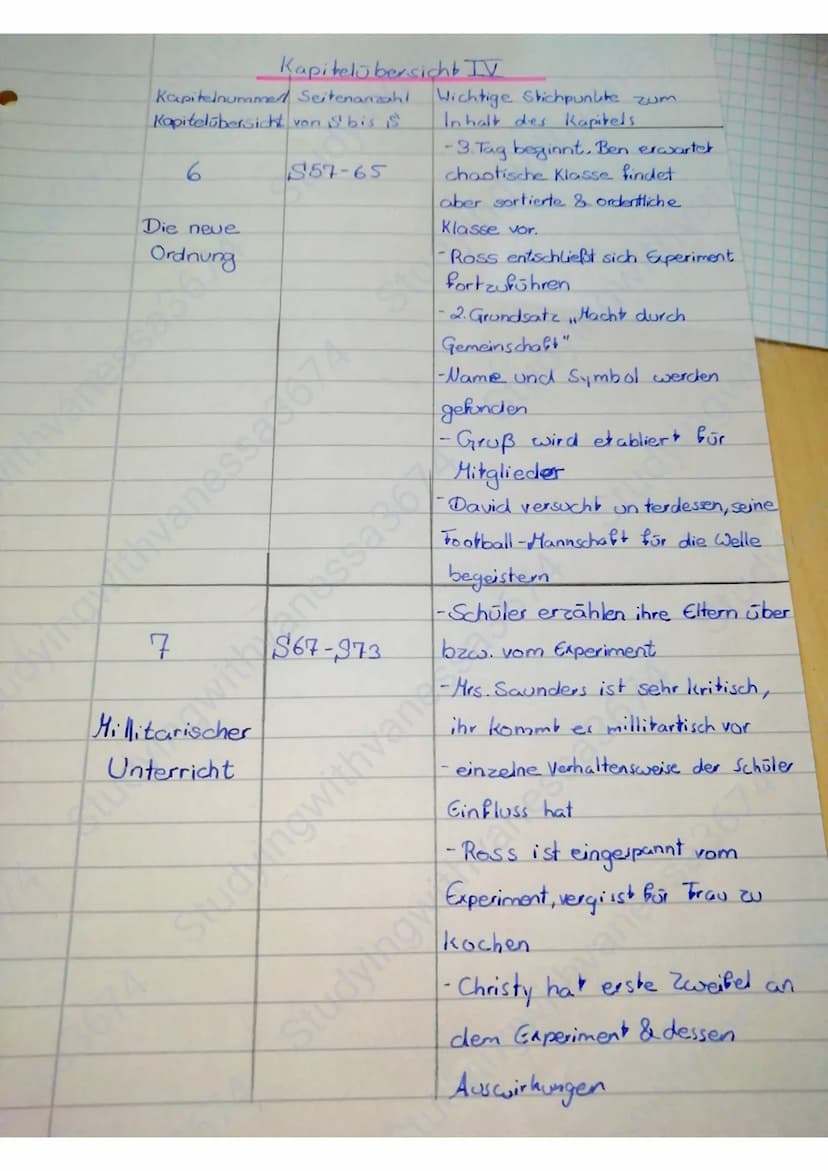 Kapitelübersicht IV
Kapitelnummer/ Seitenanzahl Wichtige Stichpunkte zum
Kapitelübersicht von S bis S Inhalt des Kapitels
6
S57-65
Die neue
Ordnung
- 3. Tag beginnt. Ben erwartet
chaotische Klasse findet
aber sortierte & ordentliche
Klasse vor.
- Ross entschließt sich Experiment
fortzuführen
- 2. Grundsatz „Macht durch
Gemeinschaft"
- Name und Symbol werden
gefunden
- Gruß wird etabliert für
Mitglieder
- David versucht unterdessen, seine
Football-Mannschaft für die Welle
begeistern
7
S67-S73
Millitarischer
Unterricht
- Schüler erzählen ihre Eltern über
bzw. vom Experiment
- Mrs. Saunders ist sehr kritisch,
ihr kommt es millitartisch vor
- einzelne Verhaltensweise der Schüler
Einfluss hat
- Ross ist eingespannt vom
Experiment, vergisst für Frau zu
kochen
- Christy hat erste Zweifel an
dem Experiment & dessen
Auswirkungen
Studyingwithvanessa3674